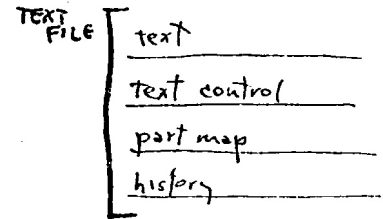 TEXT
FILE
text
text control
part map
history